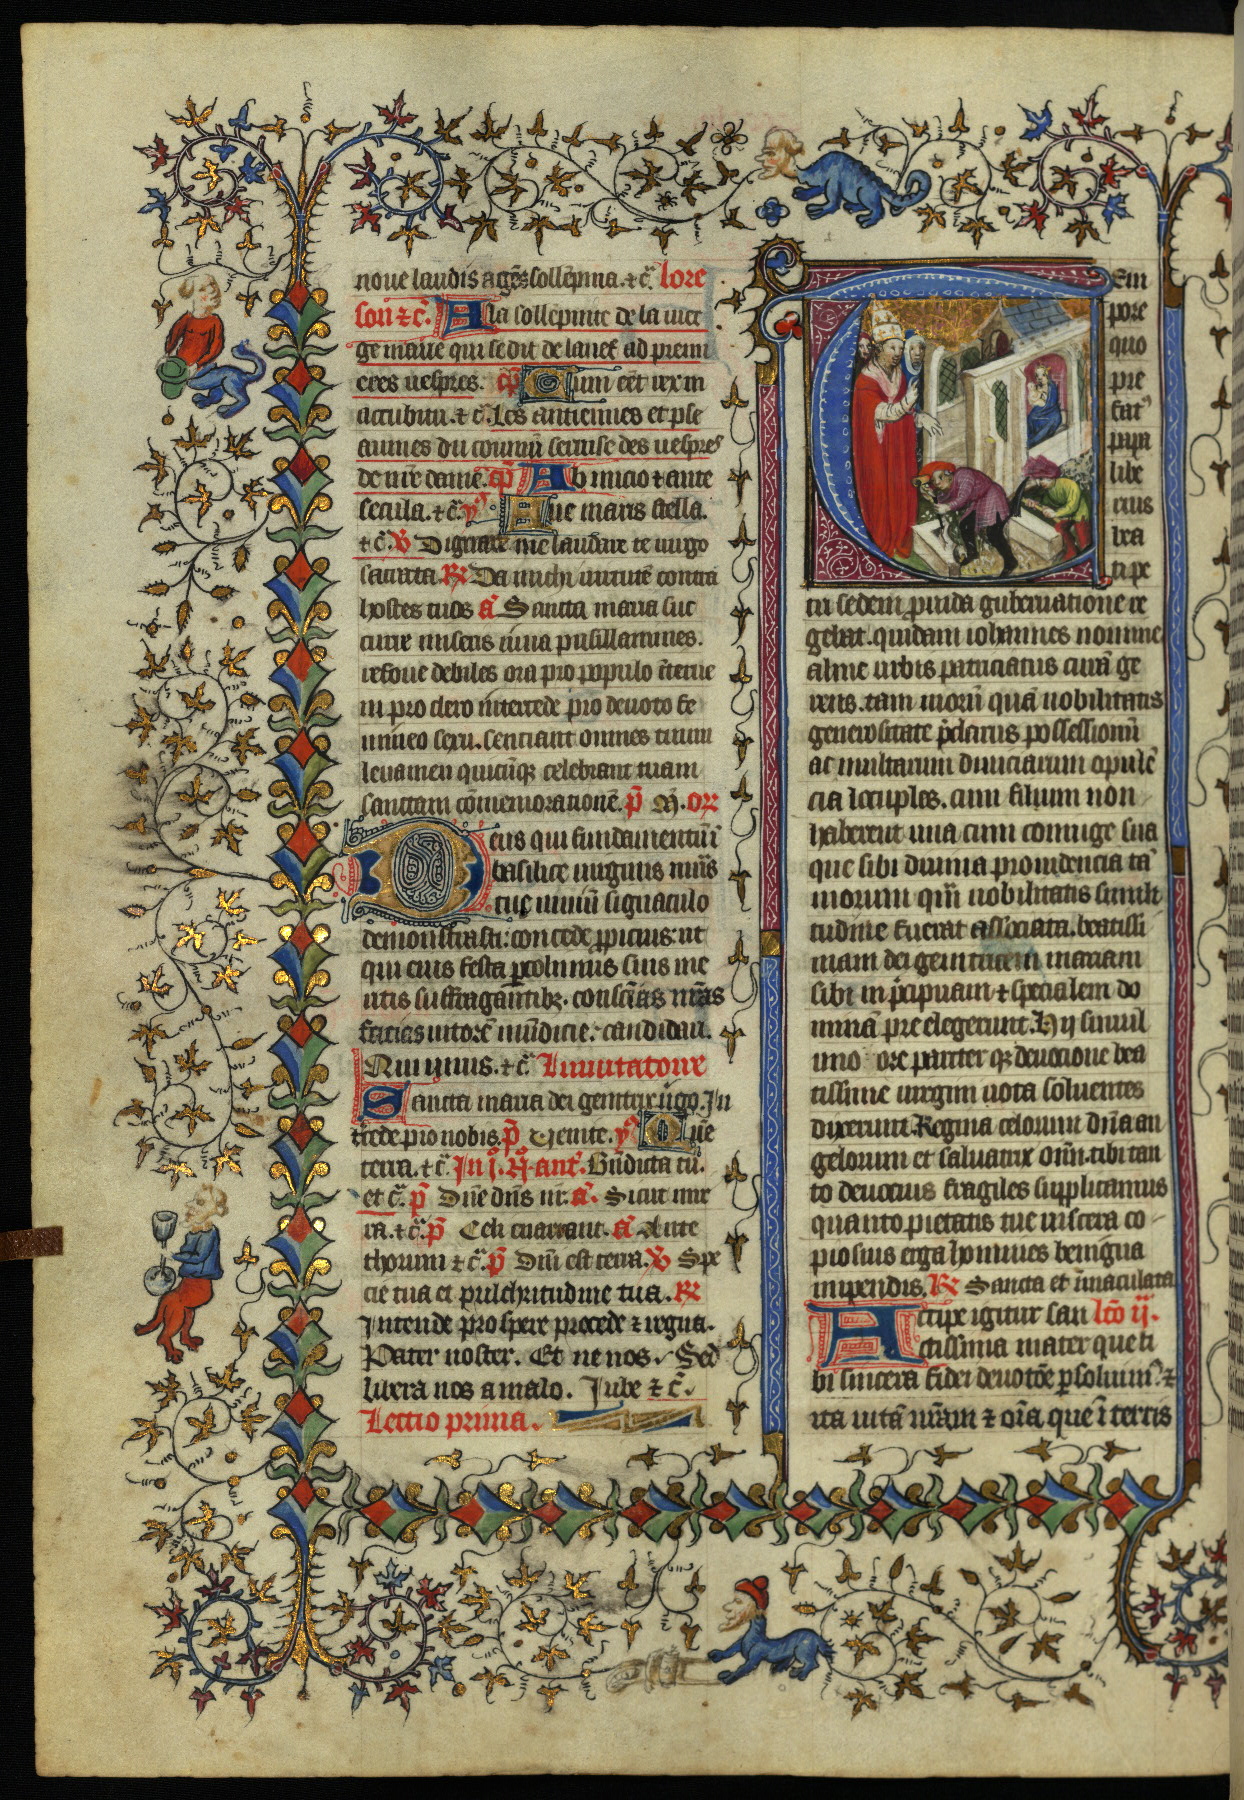 noue laudis agēs sollēpnia. ⁊ c̄. lore
son ⁊c̄. A la sollēpnite de la vier
ge marie qui se dit de laneif ad premi
eres uespres. cp̄ Cum eēt rex in
accubitu. ⁊ c̄. Les antiennes et pse
aumes du cōmun seruise des uespres
de nr̄e dame. cp̄ Ab inicio ⁊ ante
secula. ⁊ c̄. yᵃ Aue maris stella.
⁊ c̄. V Dignare me laudare te uirgo
sacrata. R Da michi uirtutē contra
hostes tuos a Sancta maria suc
curre miseris iuua pusillanimes.
refoue debiles ora pro populo īterue
ni pro clero intercede pro deuoto fe
mineo sexu. senciant omnes tuum
leuamen quicūq; celebrant tuam
sanctam cōmemorationē. p̄ M. or
Deus qui fundamentūˈ
basilice uirginis mr̄is
tue niuiū signaculo
demonstrasti: concede ꝓpicius: ut
qui eius festa ꝑcolimus suis me
ritis suffragantibꝫ. consciās nr̄as
facias nitorē mūdicie: candidari.
Qui uiuis. ⁊ c̄ Inuitatoire
Sancta maria dei genitrix ūgo. In
tcede pro nobis. p̄ Uenite. yᵃ Que
terra. ⁊ c̄. In j. N̊ ant̄. Bn̄dicta tu.
et c̄. p̄ Dn̄e dn̄s nr̄. a. Sicut mir
ra. ⁊ c̄. p̄ Celi enarrant. a Ante
thorum ⁊ c̄. p̄ Dn̄i est terra. V Spe
cie tua et pulchritudine tua. R
Intende prospere procede ⁊ regna.
Pater noster. Et ne nos. Sed
libera nos a malo. Jube ⁊ c̄.
Lectio prima.
Tem
pore
quo
pre
fatꝰ
papa
libe
rius
bea
ti pe
tri sedem ꝓuida gubernatione re
gebat. quidam iohannes nomine
alme urbis patriciatus curā ge
rens. tam morū quā nobilitatis
generositate p̄clarus possessionū
ac multarum diuiciarum opulē
cia locuples. cum filium non
haberent una cum coniuge sua
que sibi diuina prouidencia tā
morum qm̄ nobilitatis simili
tudine fuerat associata. beatissi
mam dei genitricem mariam
sibi in p̄cipuam ⁊ specialem do
minā pre elegerunt. Hij simul
uno ore pariter q; deuocione bea
tissime uirgini uota soluentes
dixerunt. Regina celorum dn̄a an
gelorum et saluatrix om̄. tibi tan
to deuocius fragiles supplicamus
quanto pietatis tue uiscera co
piosius erga homines benigna
inpendis. R Sancta et īmaculata
Accipe igitur san lcō ij.
ctissima mater que ti
bi sincera fidei deuotōe ꝑsoluimꝰ. ⁊
ita uitā nr̄am ⁊ oīa que ī terris